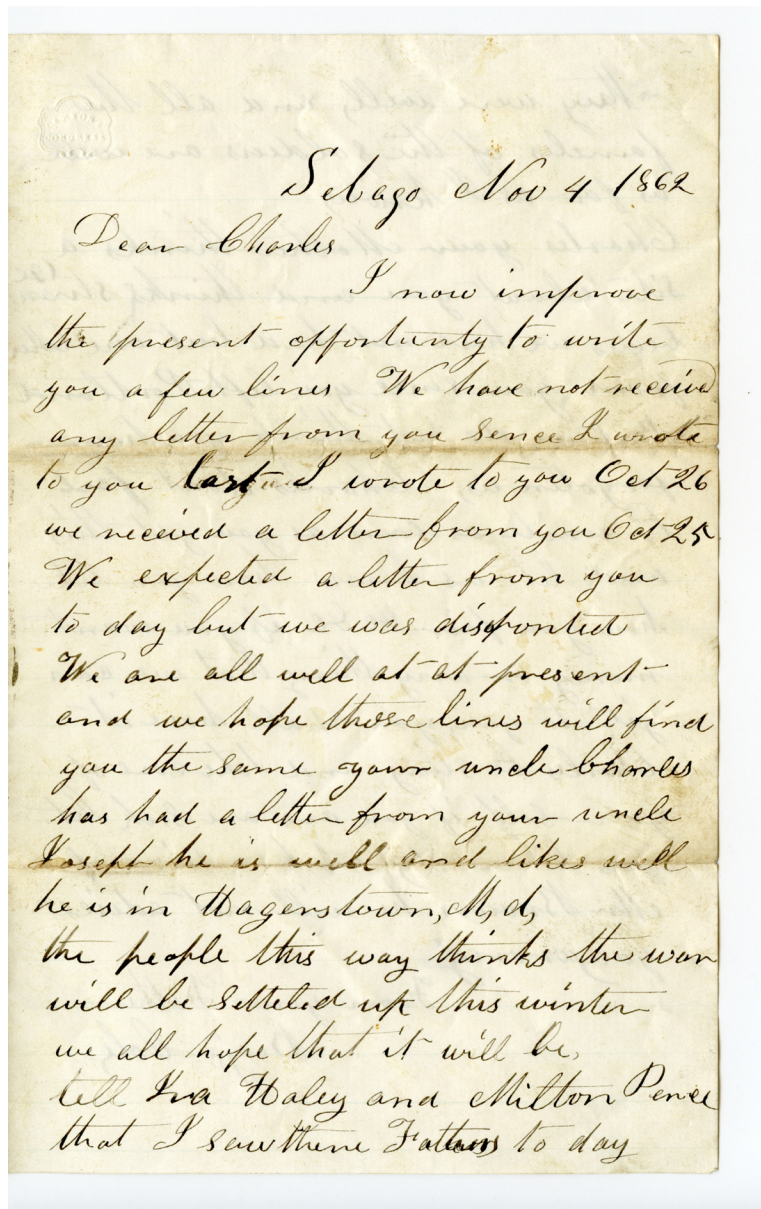 Sebago Nov 4 1862
Dear Charles
I now improve
the present opportunity to write
you a few lines We have not receivd
any letter from you sence I wrote
to you last I wrote to you Oct 26
we received a letter from you Oct 25
We expected a letter from you
to day but we was dispontед
We are all well at at present
and we hope those lines will find
you the same your uncle Charles
has had a letter from your uncle
Joseph he is well and likes well
he is in Hagerstown, M, d,
the people this way thinks the war
will be setteled up this winter
we all hope that it will be,
tell Ira Haley and Milton
that I saw there Fathers to day